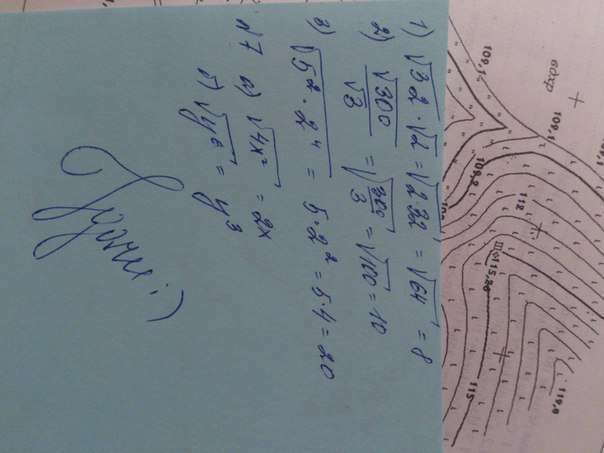 1) √32 · √2 = √2·32 = √64 = 8
2) √300/√3 = √300/3 = √100 = 10
3) √5² · 2⁴ = 5 · 2² = 5 · 4 = 20
№7 а) √4x² = 2x
б) √y⁶ = y³
Удачи :)
109,1
109,1
109,2
112
115,26
115
119,6